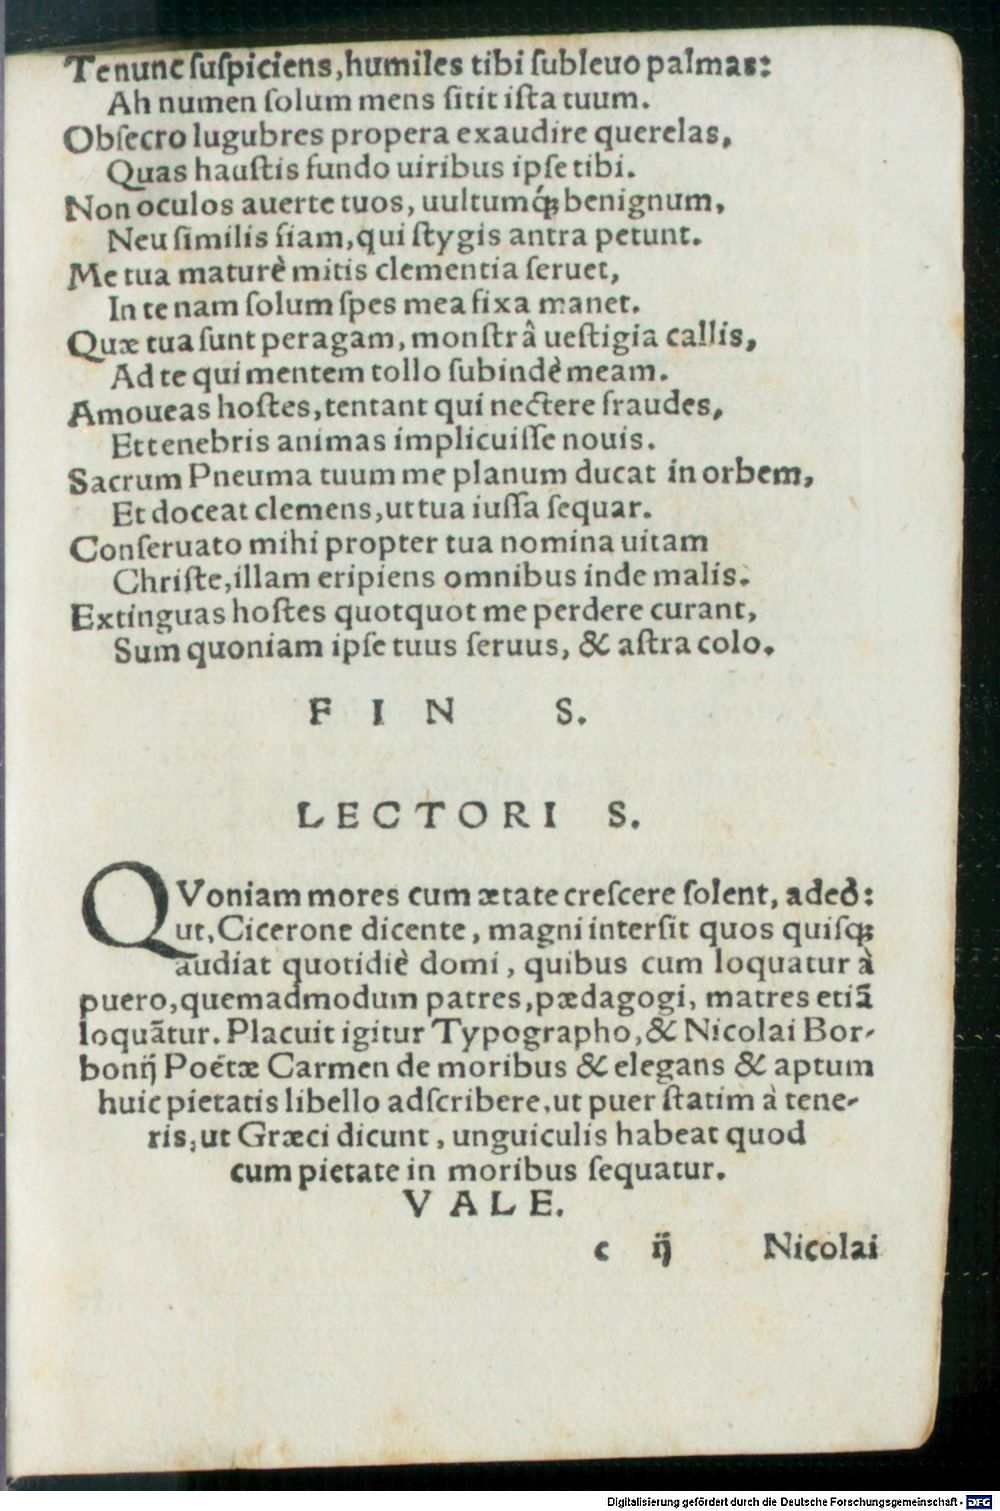 Te nunc ſuſpiciens, humiles tibi ſubleuo palmas:
Ah numen ſolum mens ſitit iſta tuum.
Obſecro lugubres propera exaudire querelas,
Quas hauſtis fundo uiribus ipſe tibi.
Non oculos auerte tuos, uultumq́ꝫ benignum,
Neu ſimilis fiam, qui ſtygis antra petunt.
Me tua maturè mitis clementia ſeruet,
In te nam ſolum ſpes mea fixa manet.
Quæ tua ſunt peragam, monſtrâ ueſtigia callis,
Ad te qui mentem tollo ſubindè meam.
Amoueas hoſtes, tentant qui nectere fraudes,
Et tenebris animas implicuiſſe nouis.
Sacrum Pneuma tuum me planum ducat in orbem,
Et doceat clemens, ut tua iuſſa ſequar.
Conſeruato mihi propter tua nomina uitam
Chriſte, illam eripiens omnibus inde malis.
Extinguas hoſtes quotquot me perdere curant,
Sum quoniam ipſe tuus ſeruus, & aſtra colo.
F I N S.
LECTORI S.
QVoniam mores cum ætate creſcere ſolent, adeò:
ut, Cicerone dicente, magni interſit quos quiſqꝫ
audiat quotidiè domi, quibus cum loquatur à
puero, quemadmodum patres, pædagogi, matres etiā
loquātur. Placuit igitur Typographo, & Nicolai Bor-
bonij Poëtæ Carmen de moribus & elegans & aptum
huic pietatis libello adſcribere, ut puer ſtatim à tene-
ris, ut Græci dicunt, unguiculis habeat quod
cum pietate in moribus ſequatur.
VALE.
c ij Nicolai
Digitalisierung gefördert durch die Deutsche Forschungsgemeinschaft - DFG